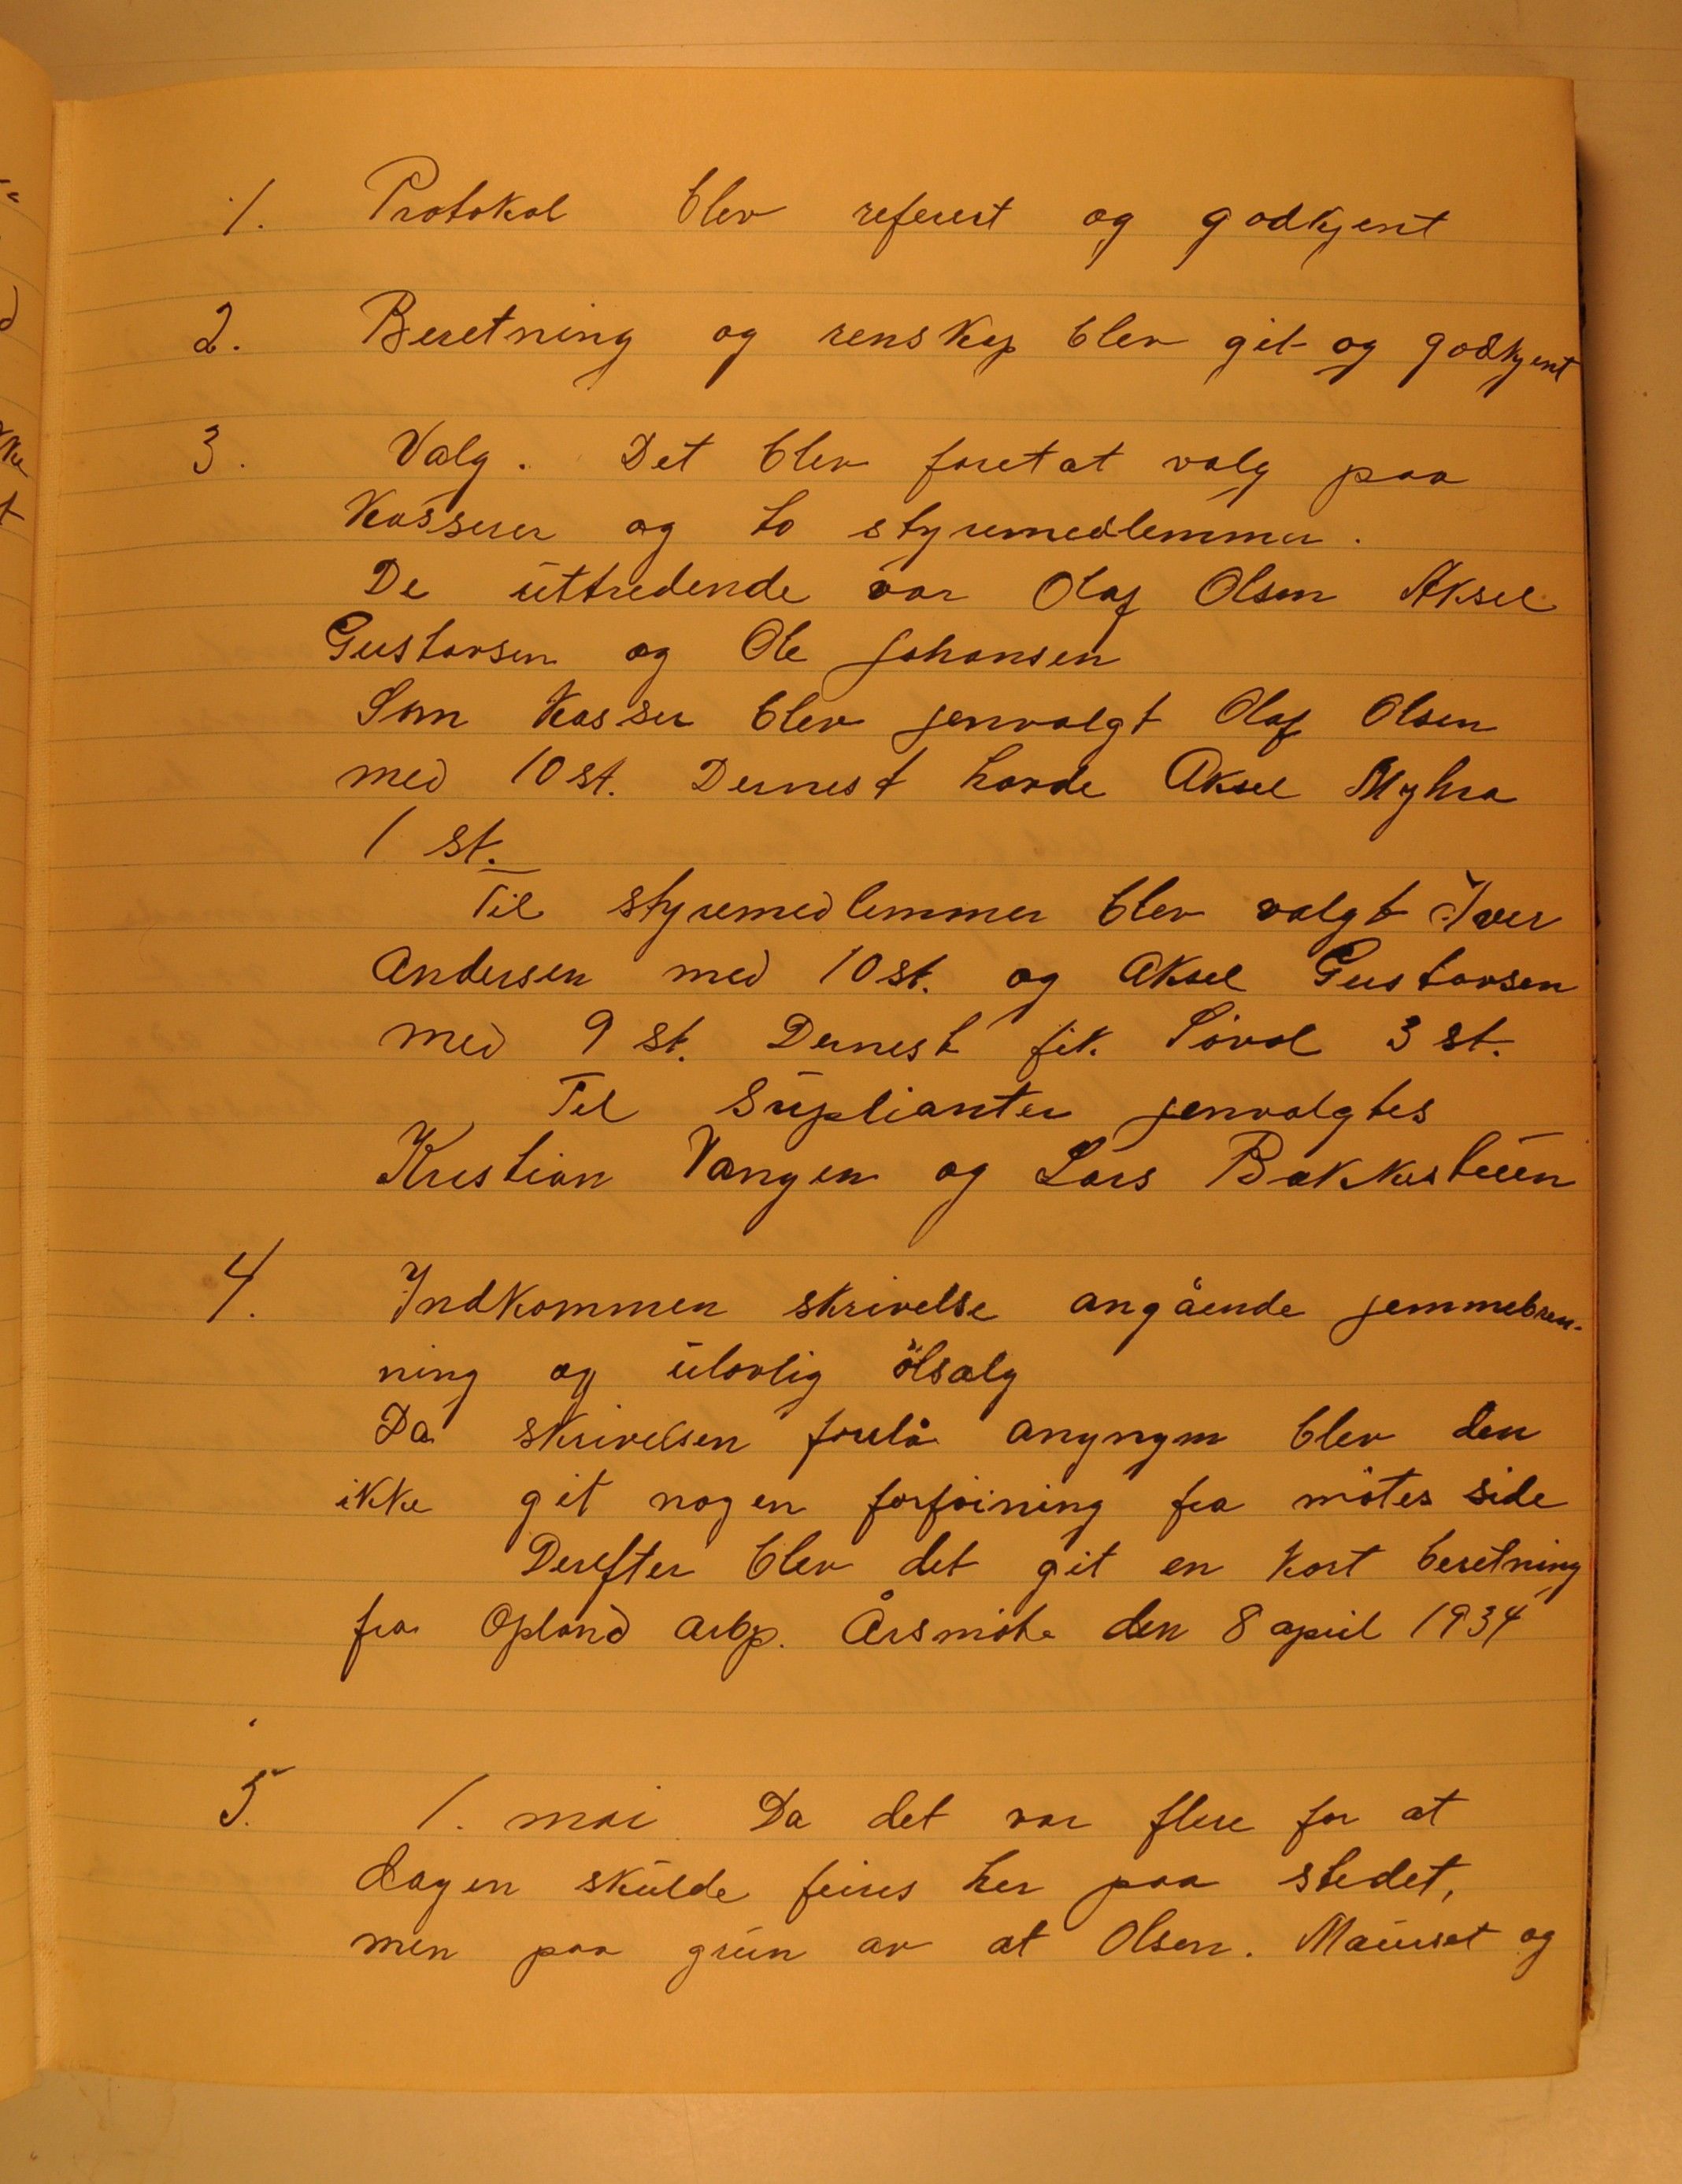 1. Protokol blev referert og godkjent
2. Beretning og renskap blev git og godkjent
3. Valg. Det blev foretat valg paa
Kasserer og to styremedlemmer.
De uttredende var Olaf Olsen Aksel
Gustavsen og Ole Johansen
Som Kasser blev jenvalgt Olaf Olsen
med 10 st. Dernest havde Aksel Myhra
1 st.
Til styremedlemmer blev valgt Iver
Andersen med 10 st. og Aksel Gustavsen
med 9 st. Dernest fik 3 st.
Til Suplianter jenvalgtes
Kristian Vangen og Lars Bakkestuen
4. Indkommen skrivelse angående jemmebren-
ning og ulovlig ölsalg
Da skrivelsen forelå anynym blev den
ikke git nogen forföining fra mötes side
Derefter blev det git en kort beretning
fra Opland arbp. Årsmöte den 8 april 1934
5. 1. mai. Da det var flere for at
dagen skulde feires her paa stedet,
men paa grun av at Olsen. Mauset og